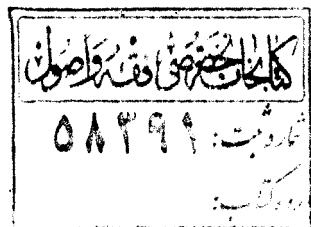 کتابخانه تخصصی فقه و اصول
شماره ثبت: ۵۸۳۹۹
رده کتاب: